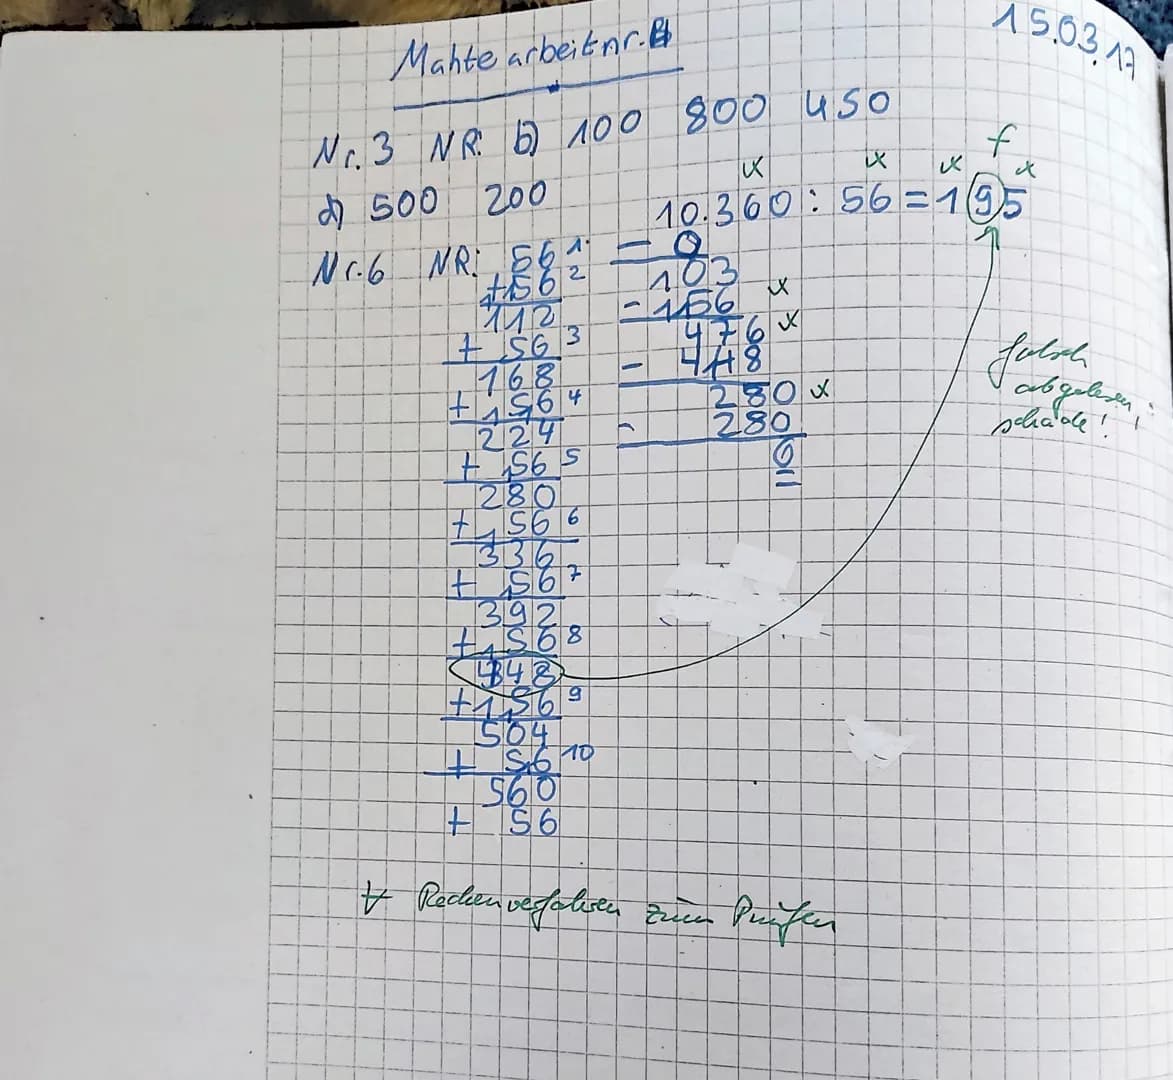 15.03.17
Mahte arbeit nr. 4
Nr. 3 NR: b) 100 800 450
d) 500 200
f
10.360 : 56 = 195
Nr. 6 NR: 56 1.
+ 56 2
112
+ 56 3
168
+ 56 4
224
+ 56 5
280
+ 56 6
336
+ 56 7
392
+ 56 8
448
+ 56 9
504
+ 56 10
560
+ 56
- 0
103
- 56
476
- 448
280
- 280
0
falsch
abgelesen
schade!
Rechenverfahren zum Prüfen